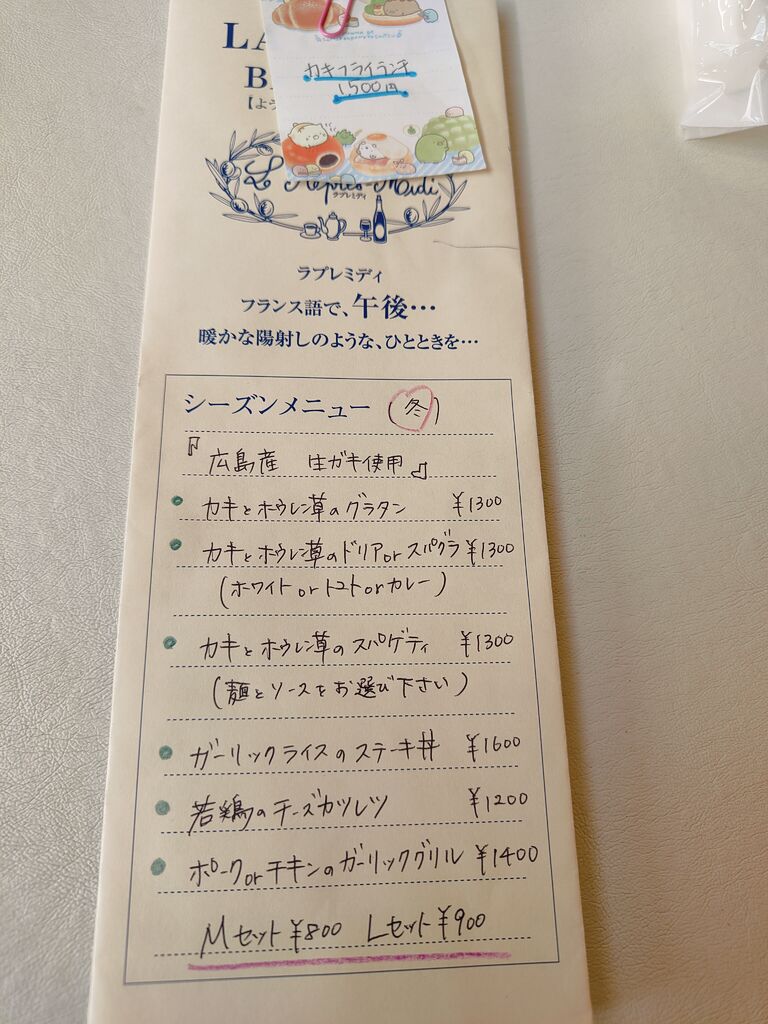 カキフライランチ
1,500円
L'Après-Midi
ラプレミディ
ラプレミディ
フランス語で、午後…
暖かな陽射しのような、ひとときを…
シーズンメニュー (冬)
『広島産 生ガキ使用』
カキとホウレン草のグラタン ¥1300
カキとホウレン草のドリアorスパグラ ¥1300
(ホワイトorトマトorカレー)
カキとホウレン草のスパゲティ ¥1300
(麺とソースをお選び下さい)
ガーリックライスのステーキ丼 ¥1600
若鶏のチーズカツレツ ¥1200
ポークorチキンのガーリックグリル ¥1400
Mセット ¥800 Lセット ¥900